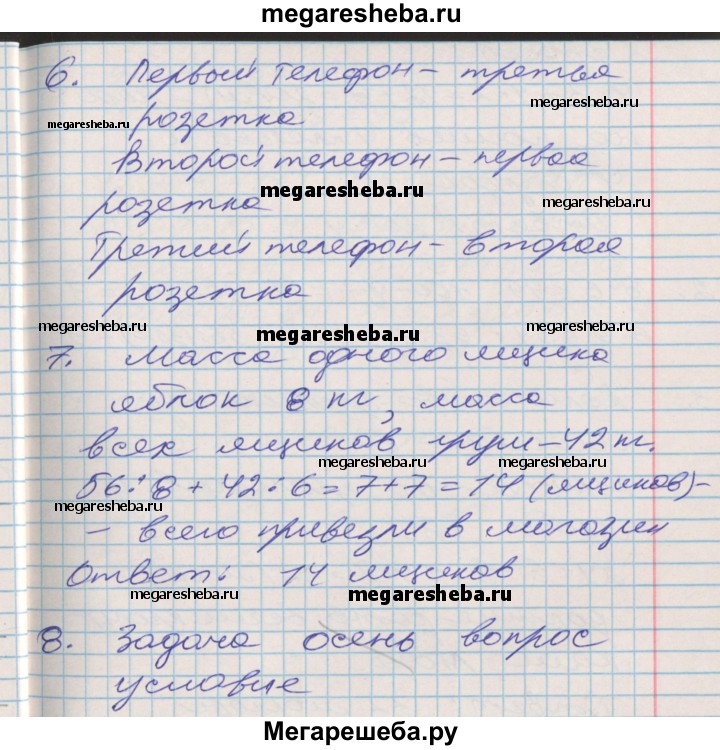 megaresheba.ru
6. Первый телефон - третья
megaresheba.ru
megaresheba.ru розетка
Второй телефон - первая
megaresheba.ru
розетка megaresheba.ru
Третий телефон - вторая
розетка
megaresheba.ru megaresheba.ru megaresheba.ru
7. Масса одного ящика
яблок 8 кг, масса
всех ящиков груш - 42 кг.
megaresheba.ru megaresheba.ru
56:8 + 42:6 = 7+7 = 14 (ящиков) -
megaresheba.ru
- всего привезли в магазин
Ответ: 14 ящиков
megaresheba.ru megaresheba.ru
8. Задача осень вопрос
условие
Мегарешеба.ру